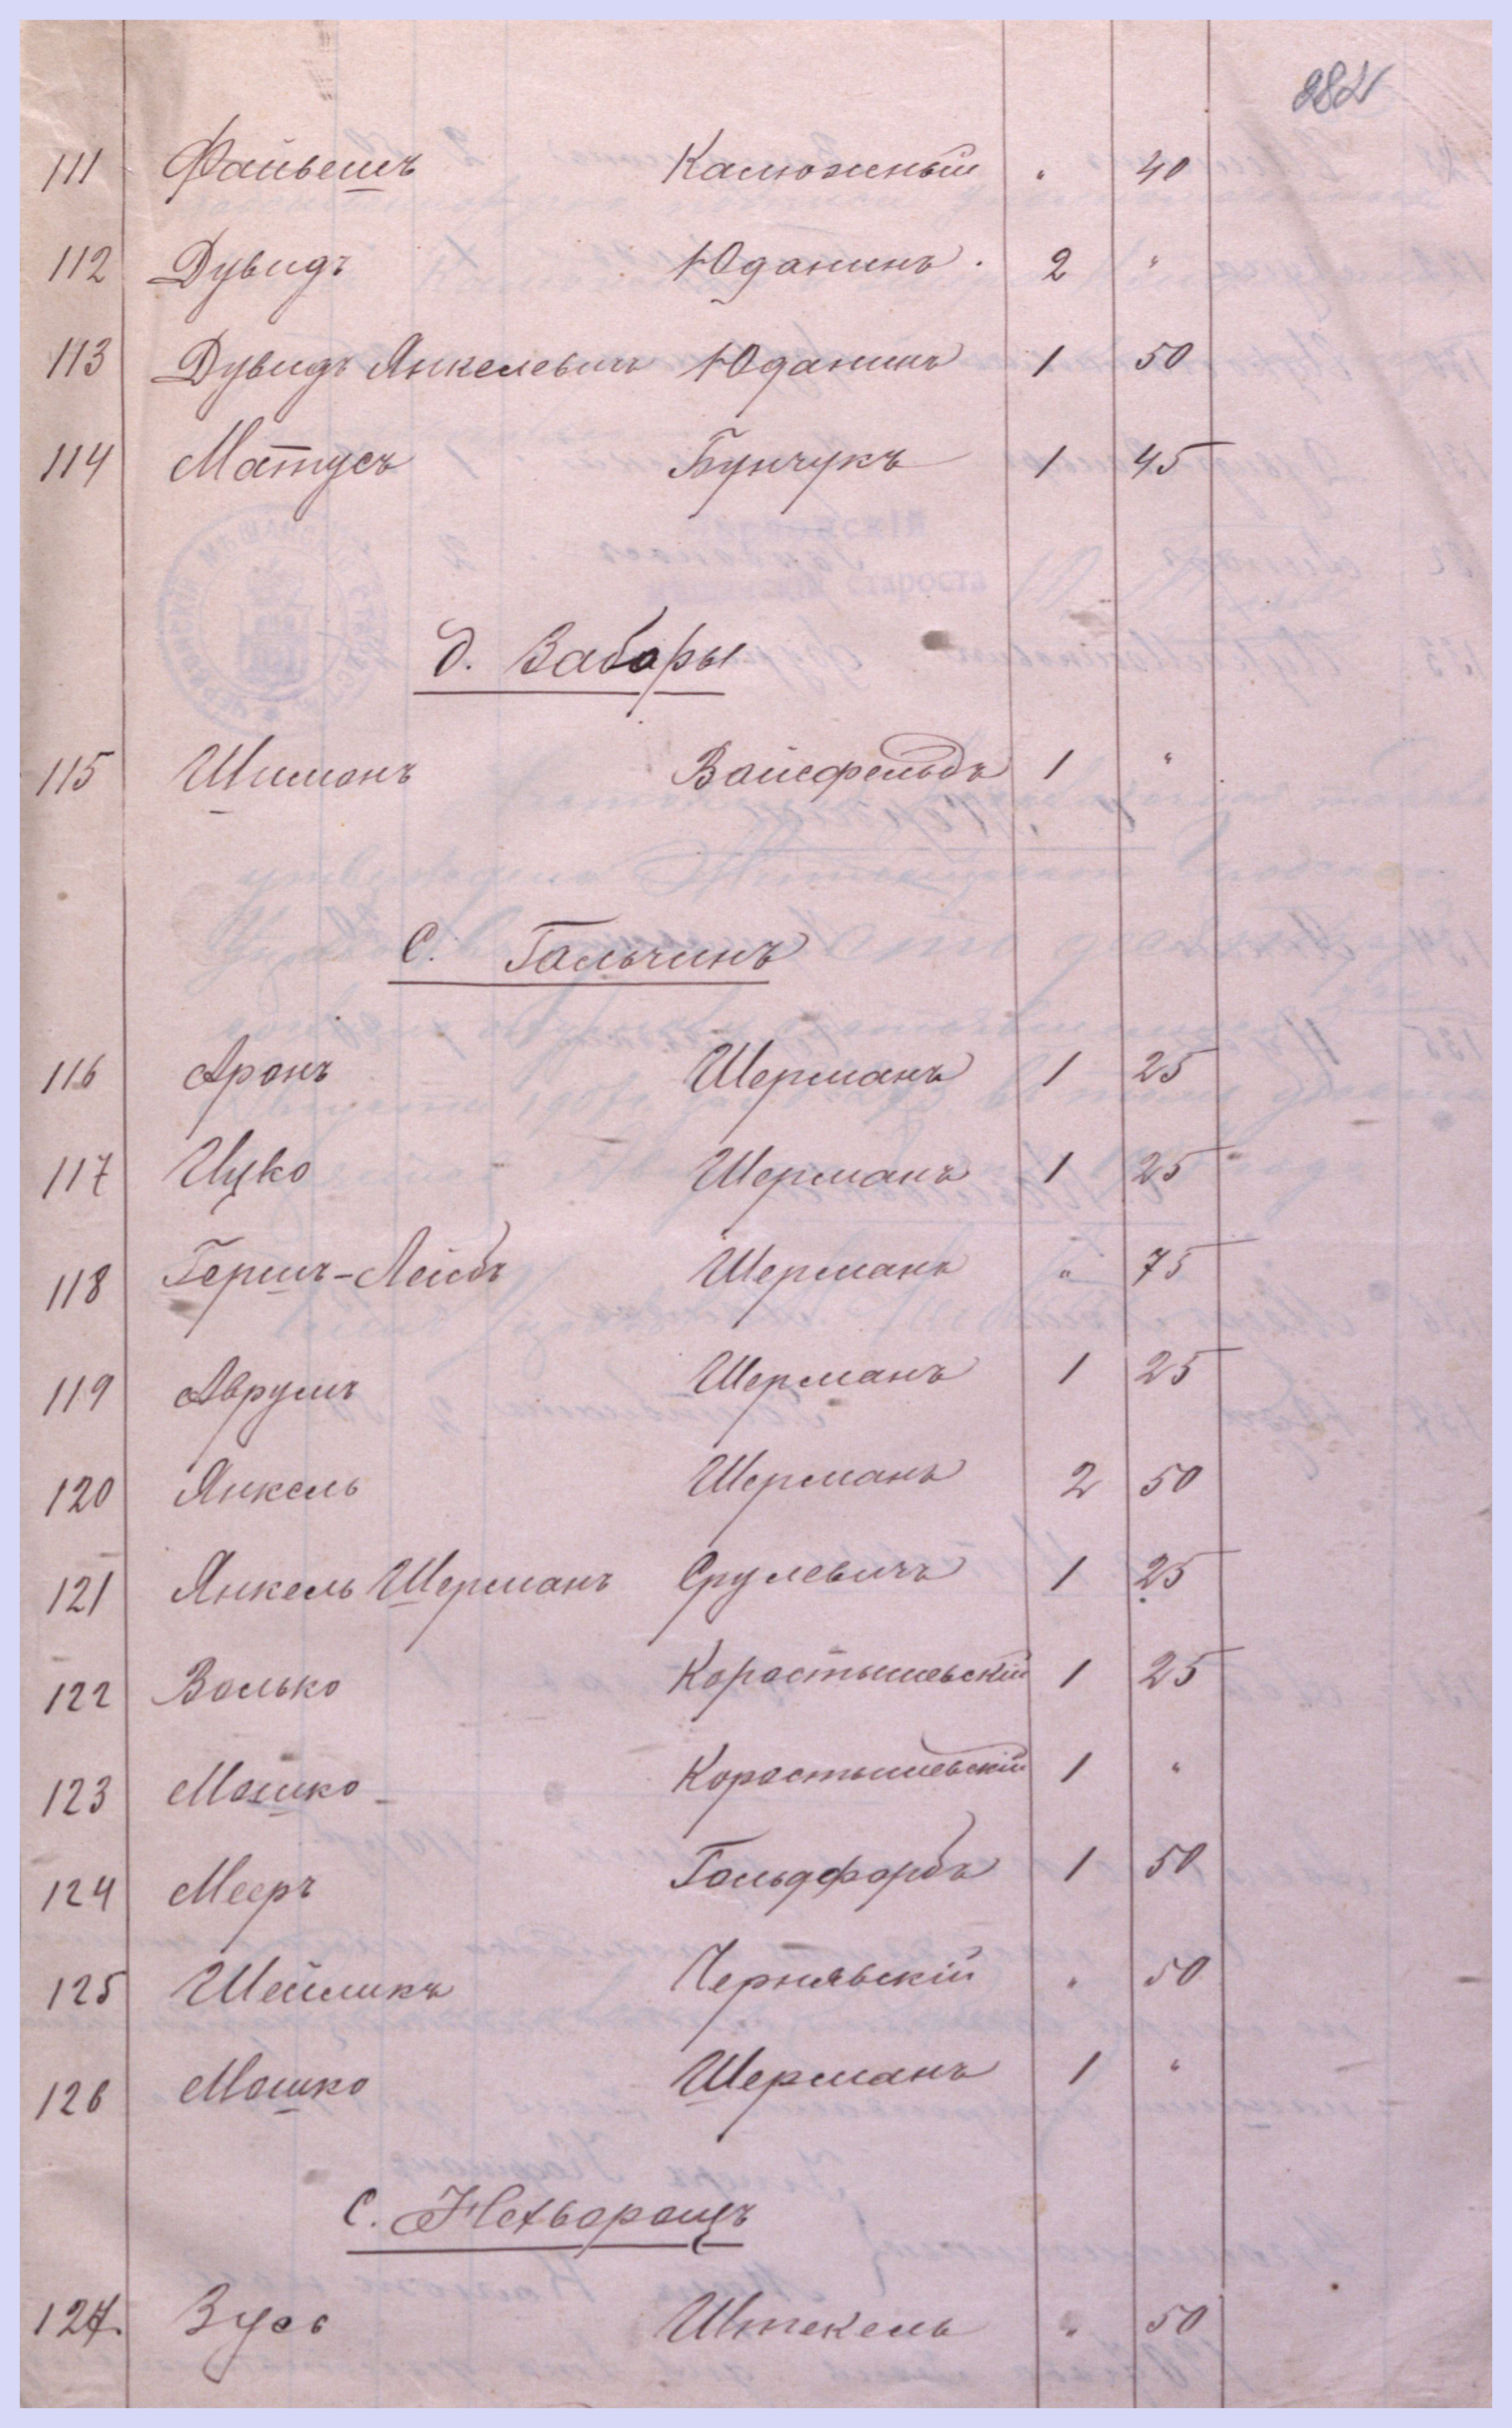 111 Файвешъ Калюжный " 40
112 Дувидъ Юданинъ . 2 "
113 Дувидъ Янкелевичъ Юданинъ 1 50
114 Матусъ Бунчукъ 1 45
д. Заборы
115 Шимонъ Вайсфельдъ 1 "
С. Гальчинъ
116 Аронъ Шерманъ 1 25
117 Ицко Шерманъ 1 25
118 Гершъ-Лейбъ Шерманъ " 75
119 Аврумъ Шерманъ 1 25
120 Янкель Шерманъ 2 50
121 Янкель Шерманъ Срулевичъ 1 25
122 Волько Коростышевскій 1 25
123 Мошко Коростышевскій 1 "
124 Мееръ Гольдфарбъ 1 50
125 Шейликъ Чернявскій " 50
126 Мошко Шерманъ 1 "
С. Нехворощъ
127. Зусь Штекель " 50